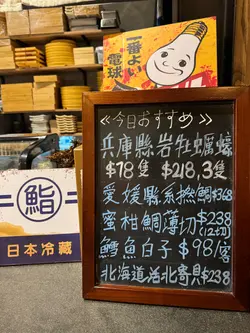 一番よい
電球
≪今日おすすめ≫
兵庫縣岩牡蠣蠔
$78隻 $218,3隻
愛媛縣系撫鯛$368
蜜柑鯛薄切$238
(12切)
鱈魚白子$98/客
北海道活北寄貝$238
鮨
日本冷藏